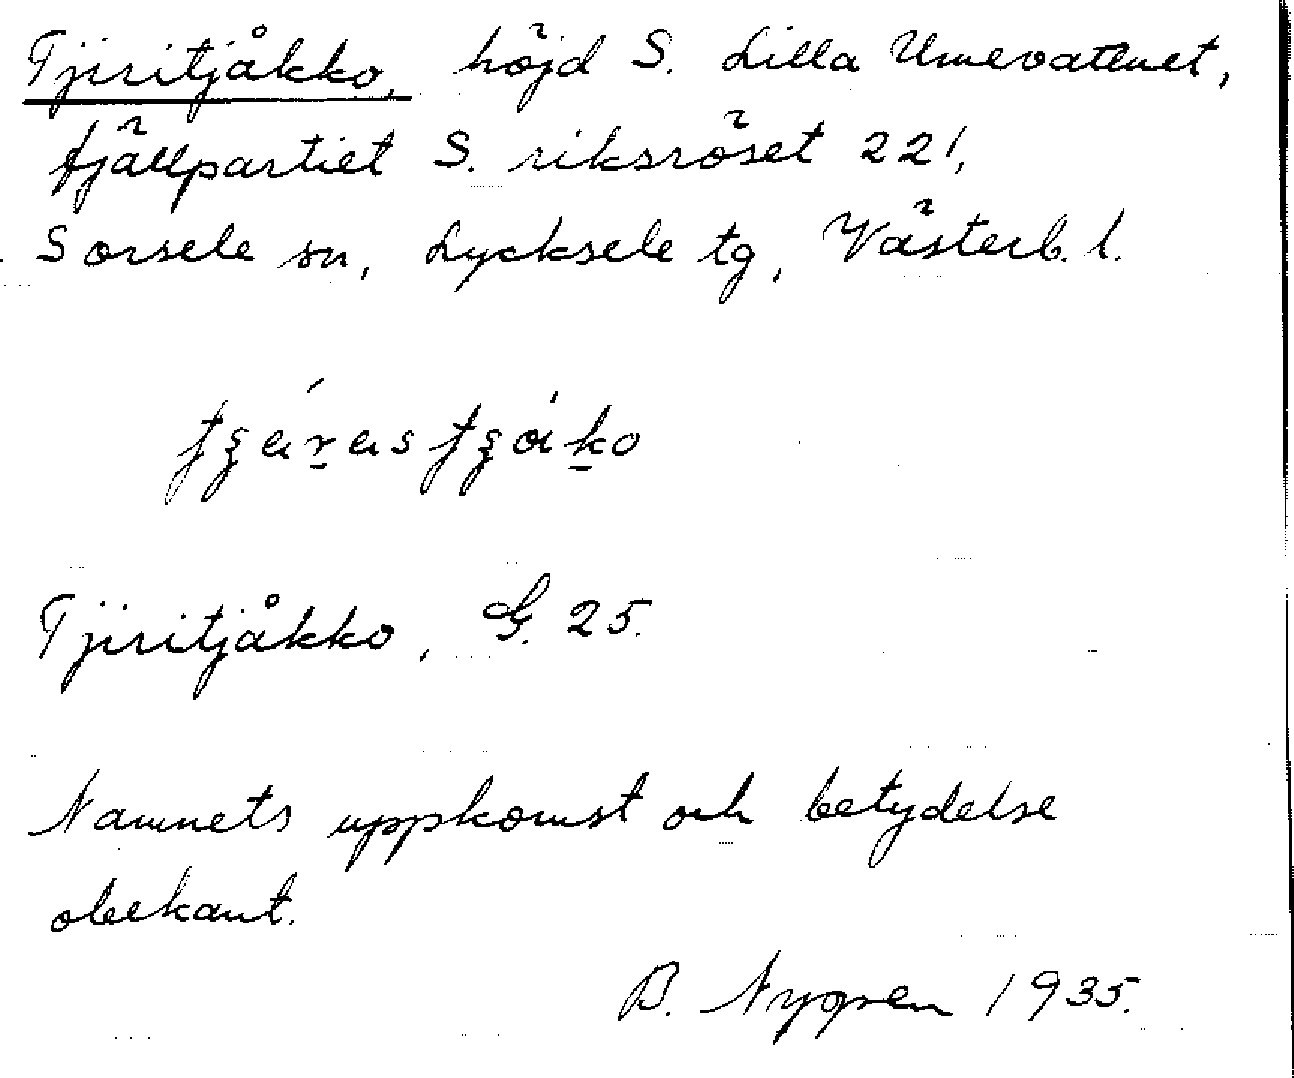 Tjiritjåkko, höjd S. Lilla Umevattnet,
fjällpartiet S. riksröset 221,
Sorsele sn, Lycksele tg, Västerb. l.
Tjiritjåkko, G. 25.
Namnets uppkomst och betydelse
obekant.
B. Nygren 1935.